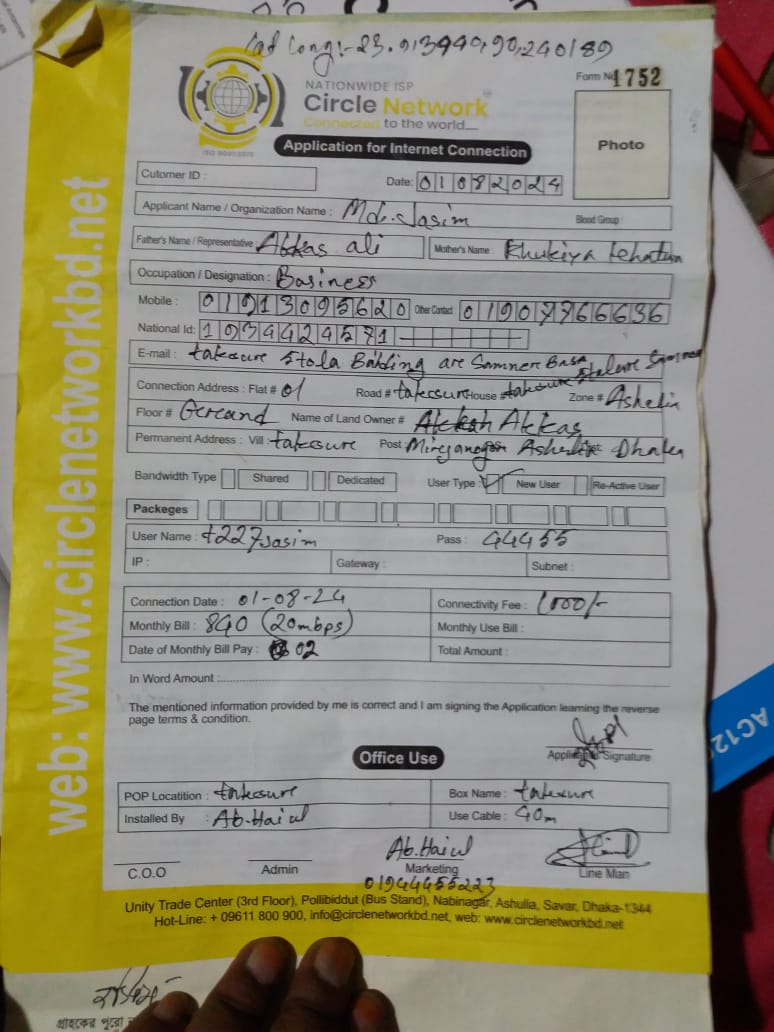 Lat Long:- 23.913999,90,240189
NATIONWIDE ISP
Form No 1752
Circle Network
Connected to the world...
ISO 9001:2015
Application for Internet Connection
Photo
Cutomer ID :
Date: 01082024
Applicant Name / Organization Name : Md. Jasim
Blood Group :
Father's Name / Representative : Akkas ali
Mother's Name : Khukiya Khatun
Occupation / Designation : Business
Mobile : 01913095620 Other Contact 01907766636
National Id: 1934424571
E-mail : takesure 5tola Bailding are Samner Basa
Connection Address : Flat # 01 Road # takesure House # takesure Zone # Ashelia
Floor # Gereand Name of Land Owner # Akkas
Permanent Address : Vill : takesure Post Mirzanagor Dhaka
Bandwidth Type Shared Dedicated User Type : New User Re-Active User
Packeges
User Name : t227jasim Pass : 44455
IP : Gateway : Subnet :
Connection Date : 01-08-24 Connectivity Fee : 1000/-
Monthly Bill : 840 (20mbps) Monthly Use Bill :
Date of Monthly Bill Pay : 02 Total Amount :
In Word Amount :
The mentioned information provided by me is correct and I am signing the Application learning the reverse
page terms & condition.
Applicant Signature
Office Use
POP Locatition : takesure Box Name : takesure
Installed By : Ab.Haiul Use Cable : 40m
Ab.Haiul
C.O.O Admin Marketing Line Man
01944455223
Unity Trade Center (3rd Floor), Pollibiddut (Bus Stand), Nabinagar, Ashulia, Savar, Dhaka-1344
Hot-Line: + 09611 800 900, info@circlenetworkbd.net, web: www.circlenetworkbd.net
web: www.circlenetworkbd.net
AC12
গ্রাহকের পুরো